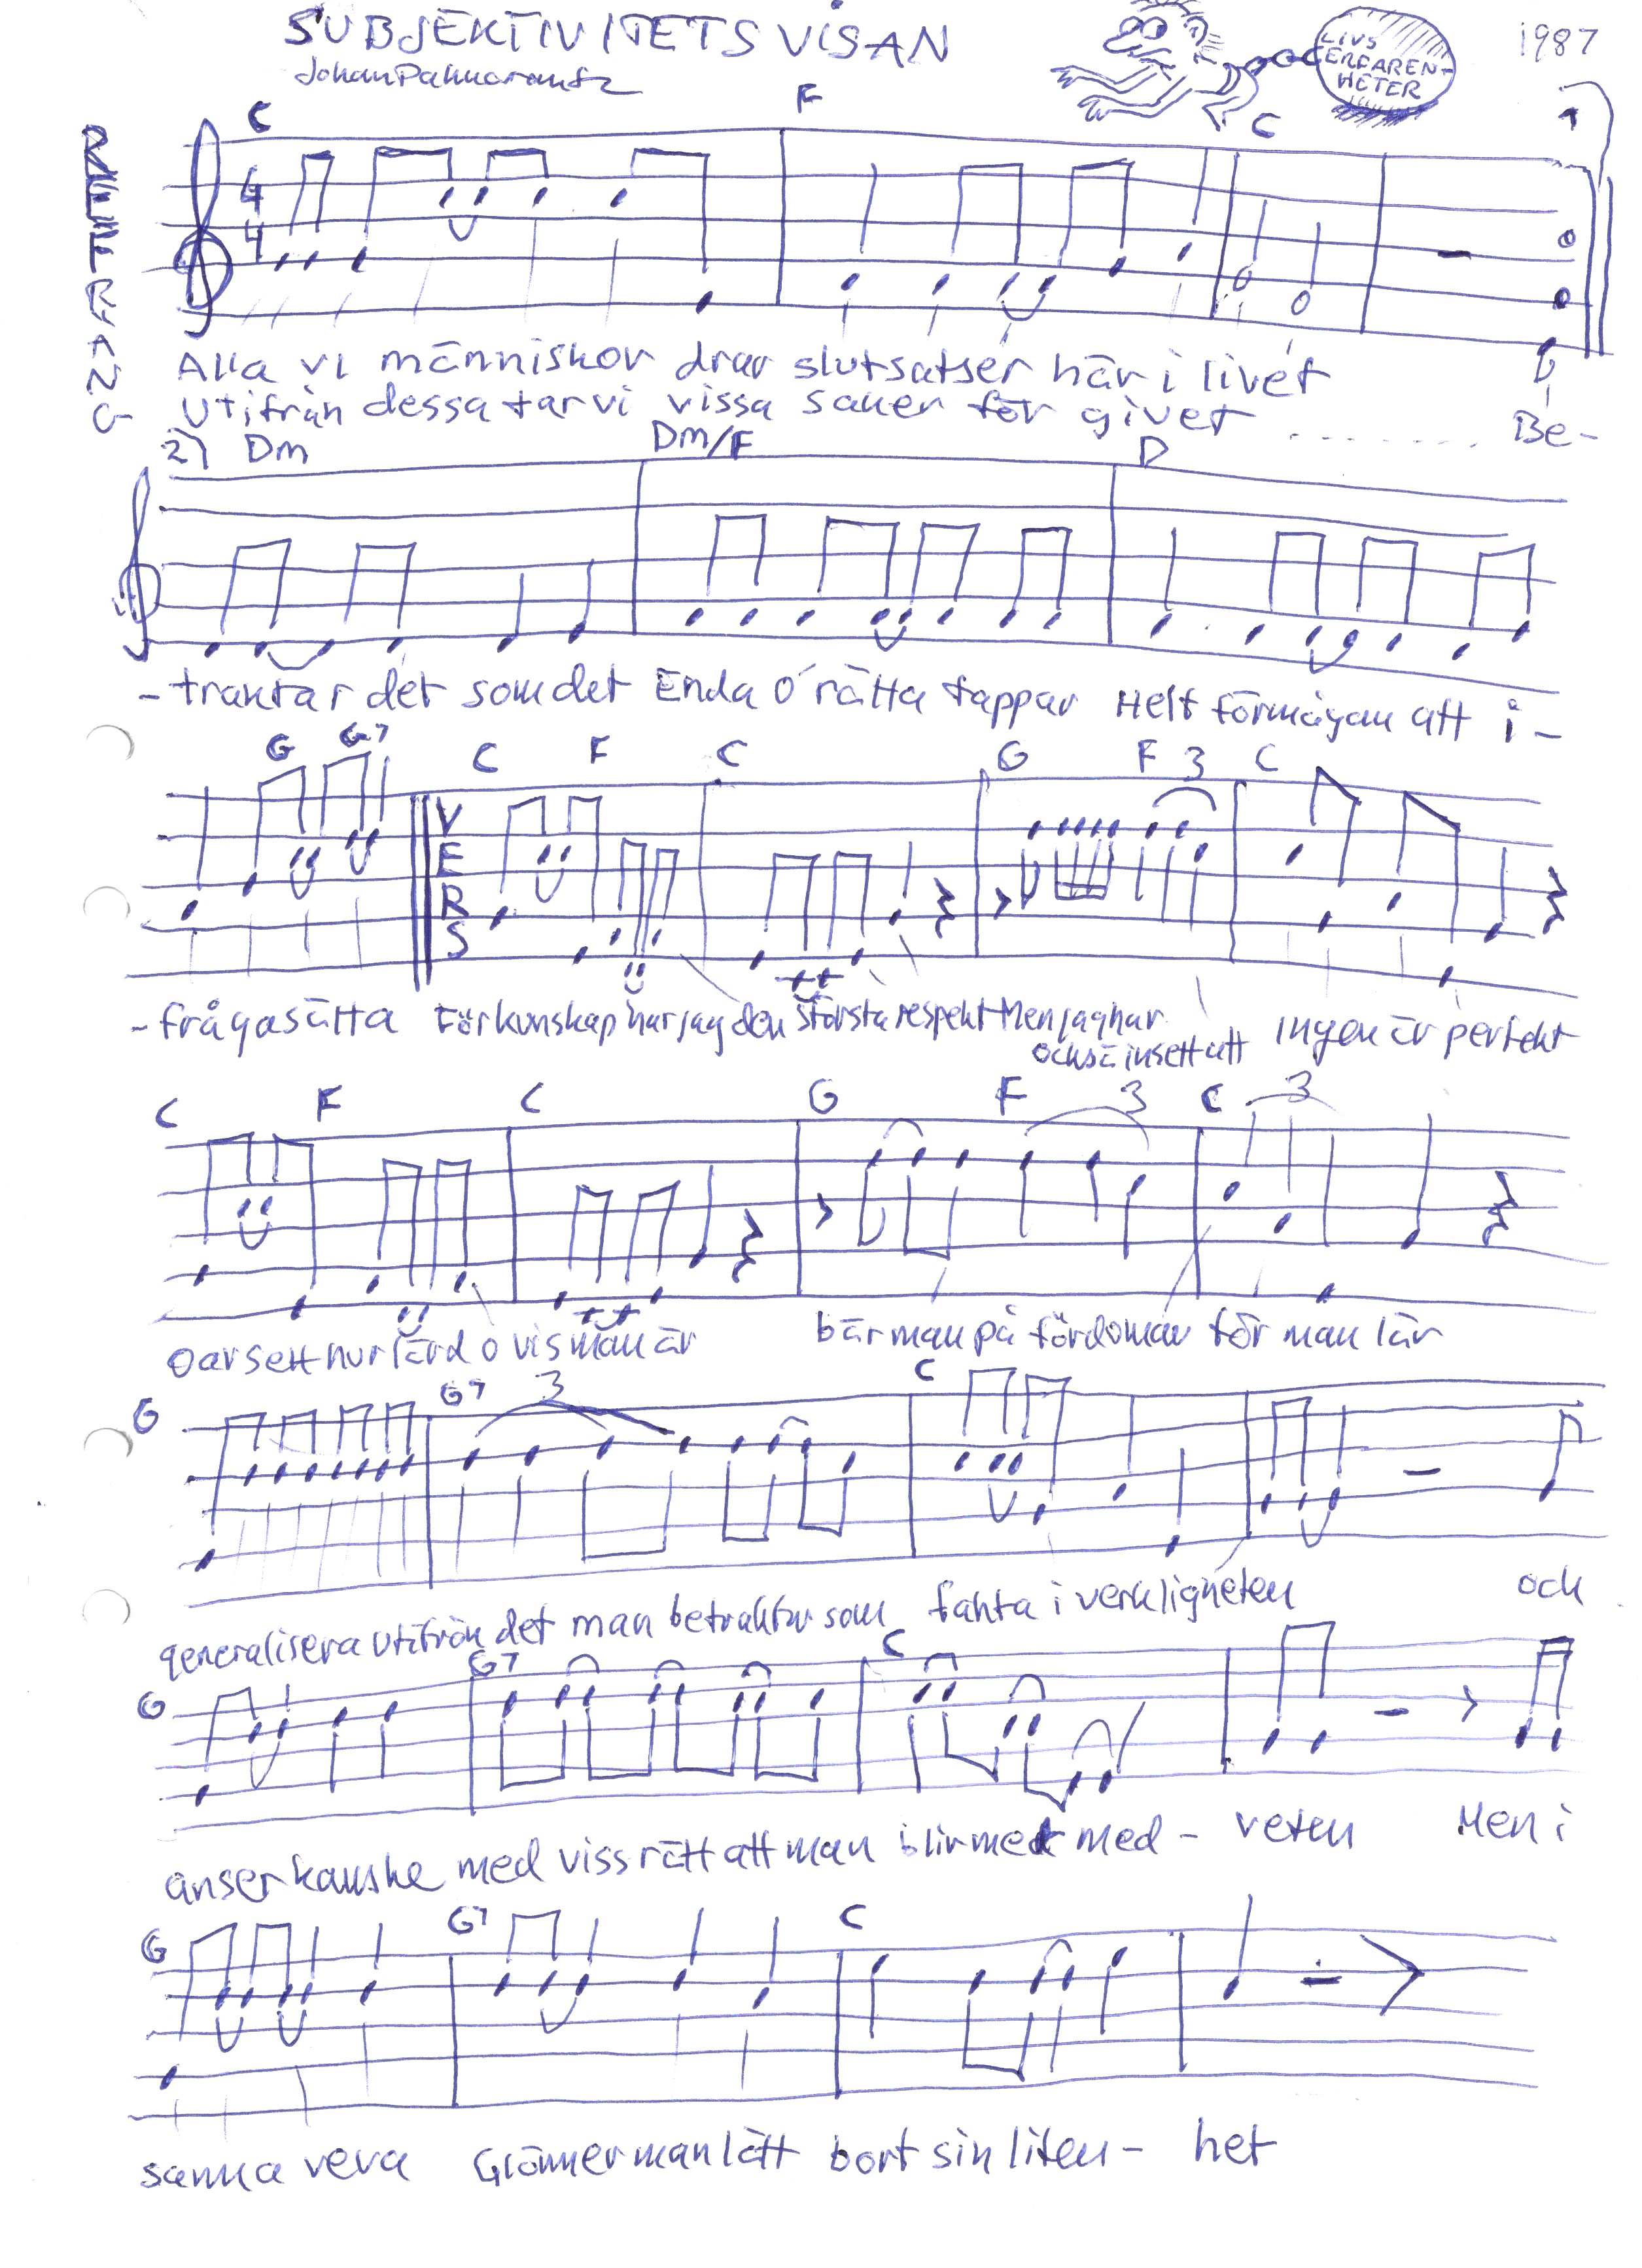 SUBJEKTIVITETSVISAN
Johan Palmcrantz
LIVS
ERFAREN-
HETER
1987
REFRÄNG
C F C
4
4
Alla vi människor drar slutsatser här i livet
Utifrån dessa tar vi vissa saker för givet ......... Be-
2) Dm Dm/F D
-traktar det som det Enda o' rätta tappar Helt förmågan att i-
G G7 C F C G F 3 C
VERS
-frågasätta För kunskap har jag den största respekt Men jag har
också insett att ingen är perfekt
C F C G F 3 C 3
oavsett hur lärd o vis man är bär man på fördomar för man lär
G G7 3 C
generalisera utifrån det man betraktar som fakta i verkligheten och
G G7 C
anser kanske med viss rätt att man blir med med- veten Men i
G G7 C
samma veva Glömmer man lätt bort sin liten- het